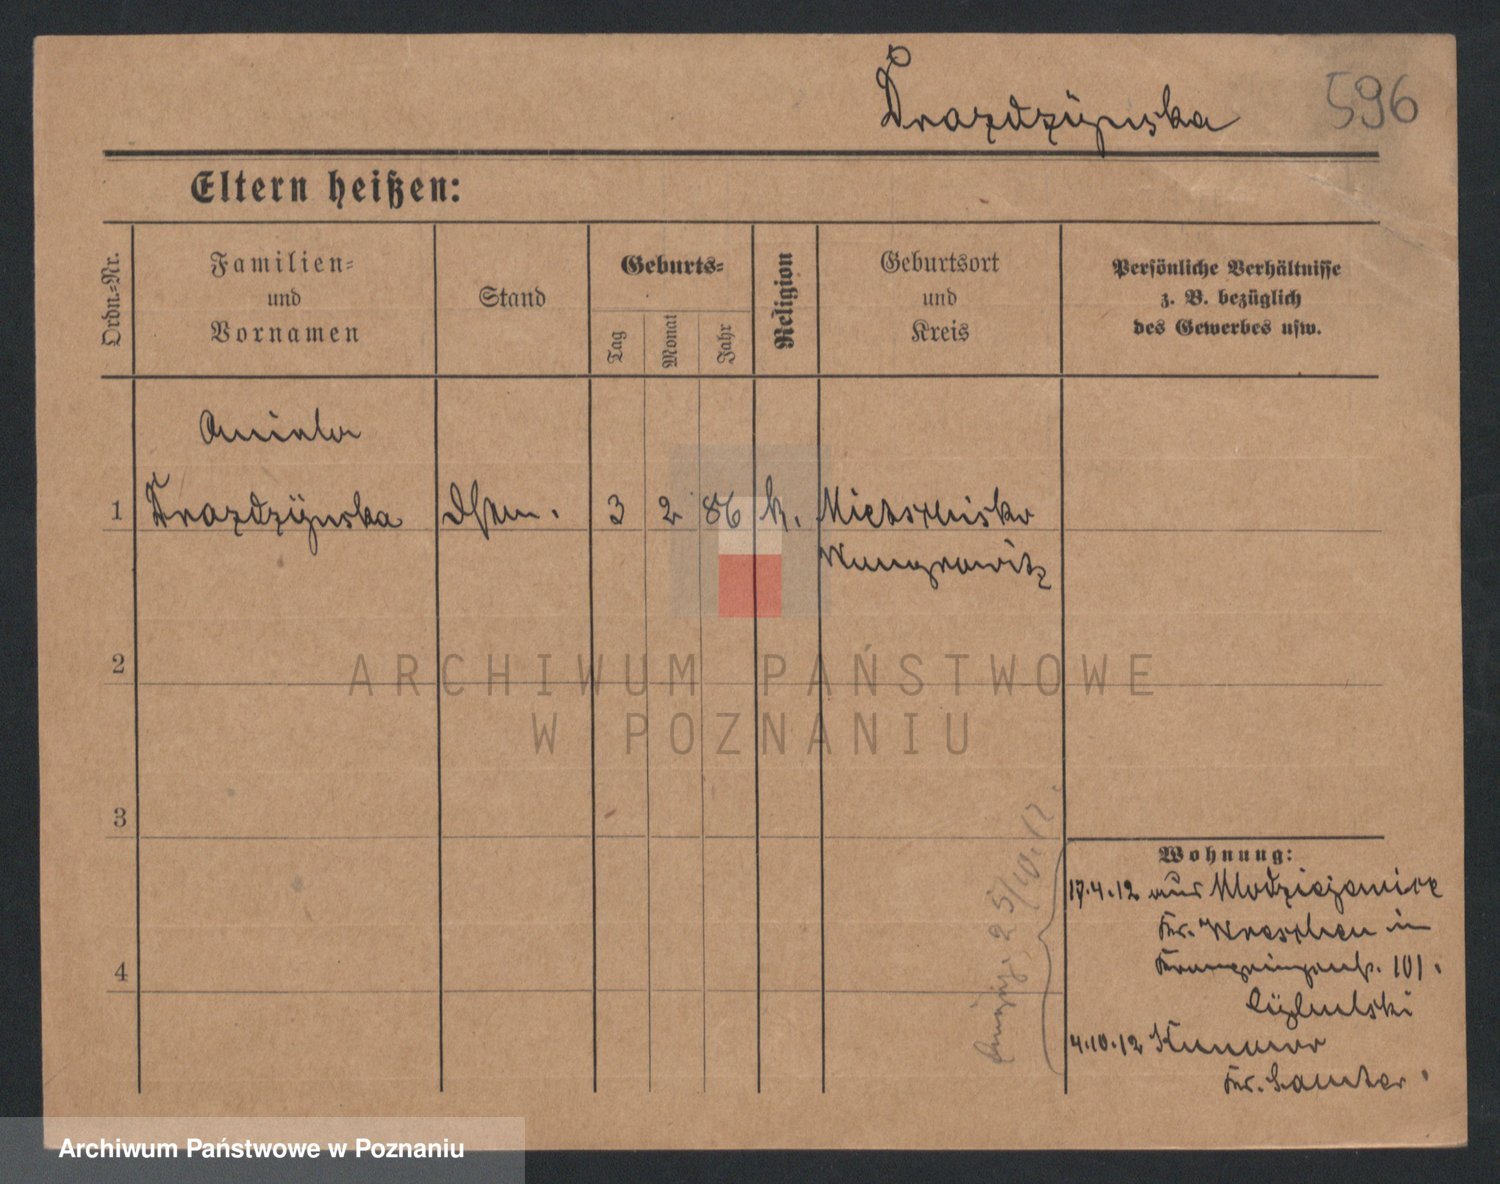 Drozdzÿnska
596
Eltern heißen:
Ordn.-Nr.
Familien-
und
Vornamen
Stand
Geburts-
Tag
Monat
Jahr
Religion
Geburtsort
und
Kreis
Persönliche Verhältnisse
z. B. bezüglich
des Gewerbes usw.
Aniela
1 Drozdzÿnska 3 2 86 k. Mietschisko
Wongrowitz
2
ARCHIWUM PAŃSTWOWE
W POZNANIU
3
4
Wohnung:
17.4.12 aus
Kr. Wreschen in
101.
4.10.12
Kr. Samter
25/10.12.
Archiwum Państwowe w Poznaniu